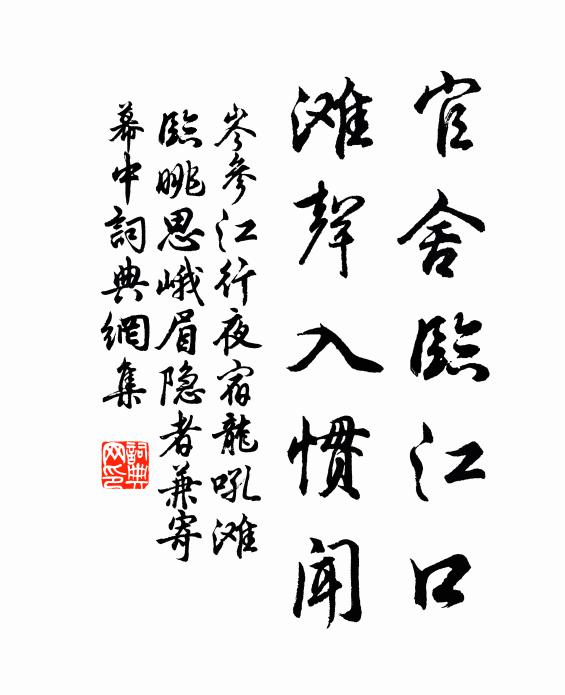 官舍臨江口
滩聲入慣聞
岑參江行夜宿龍吼滩
臨眺思峨眉隐者兼寄
幕中詞典網集
詞典网印